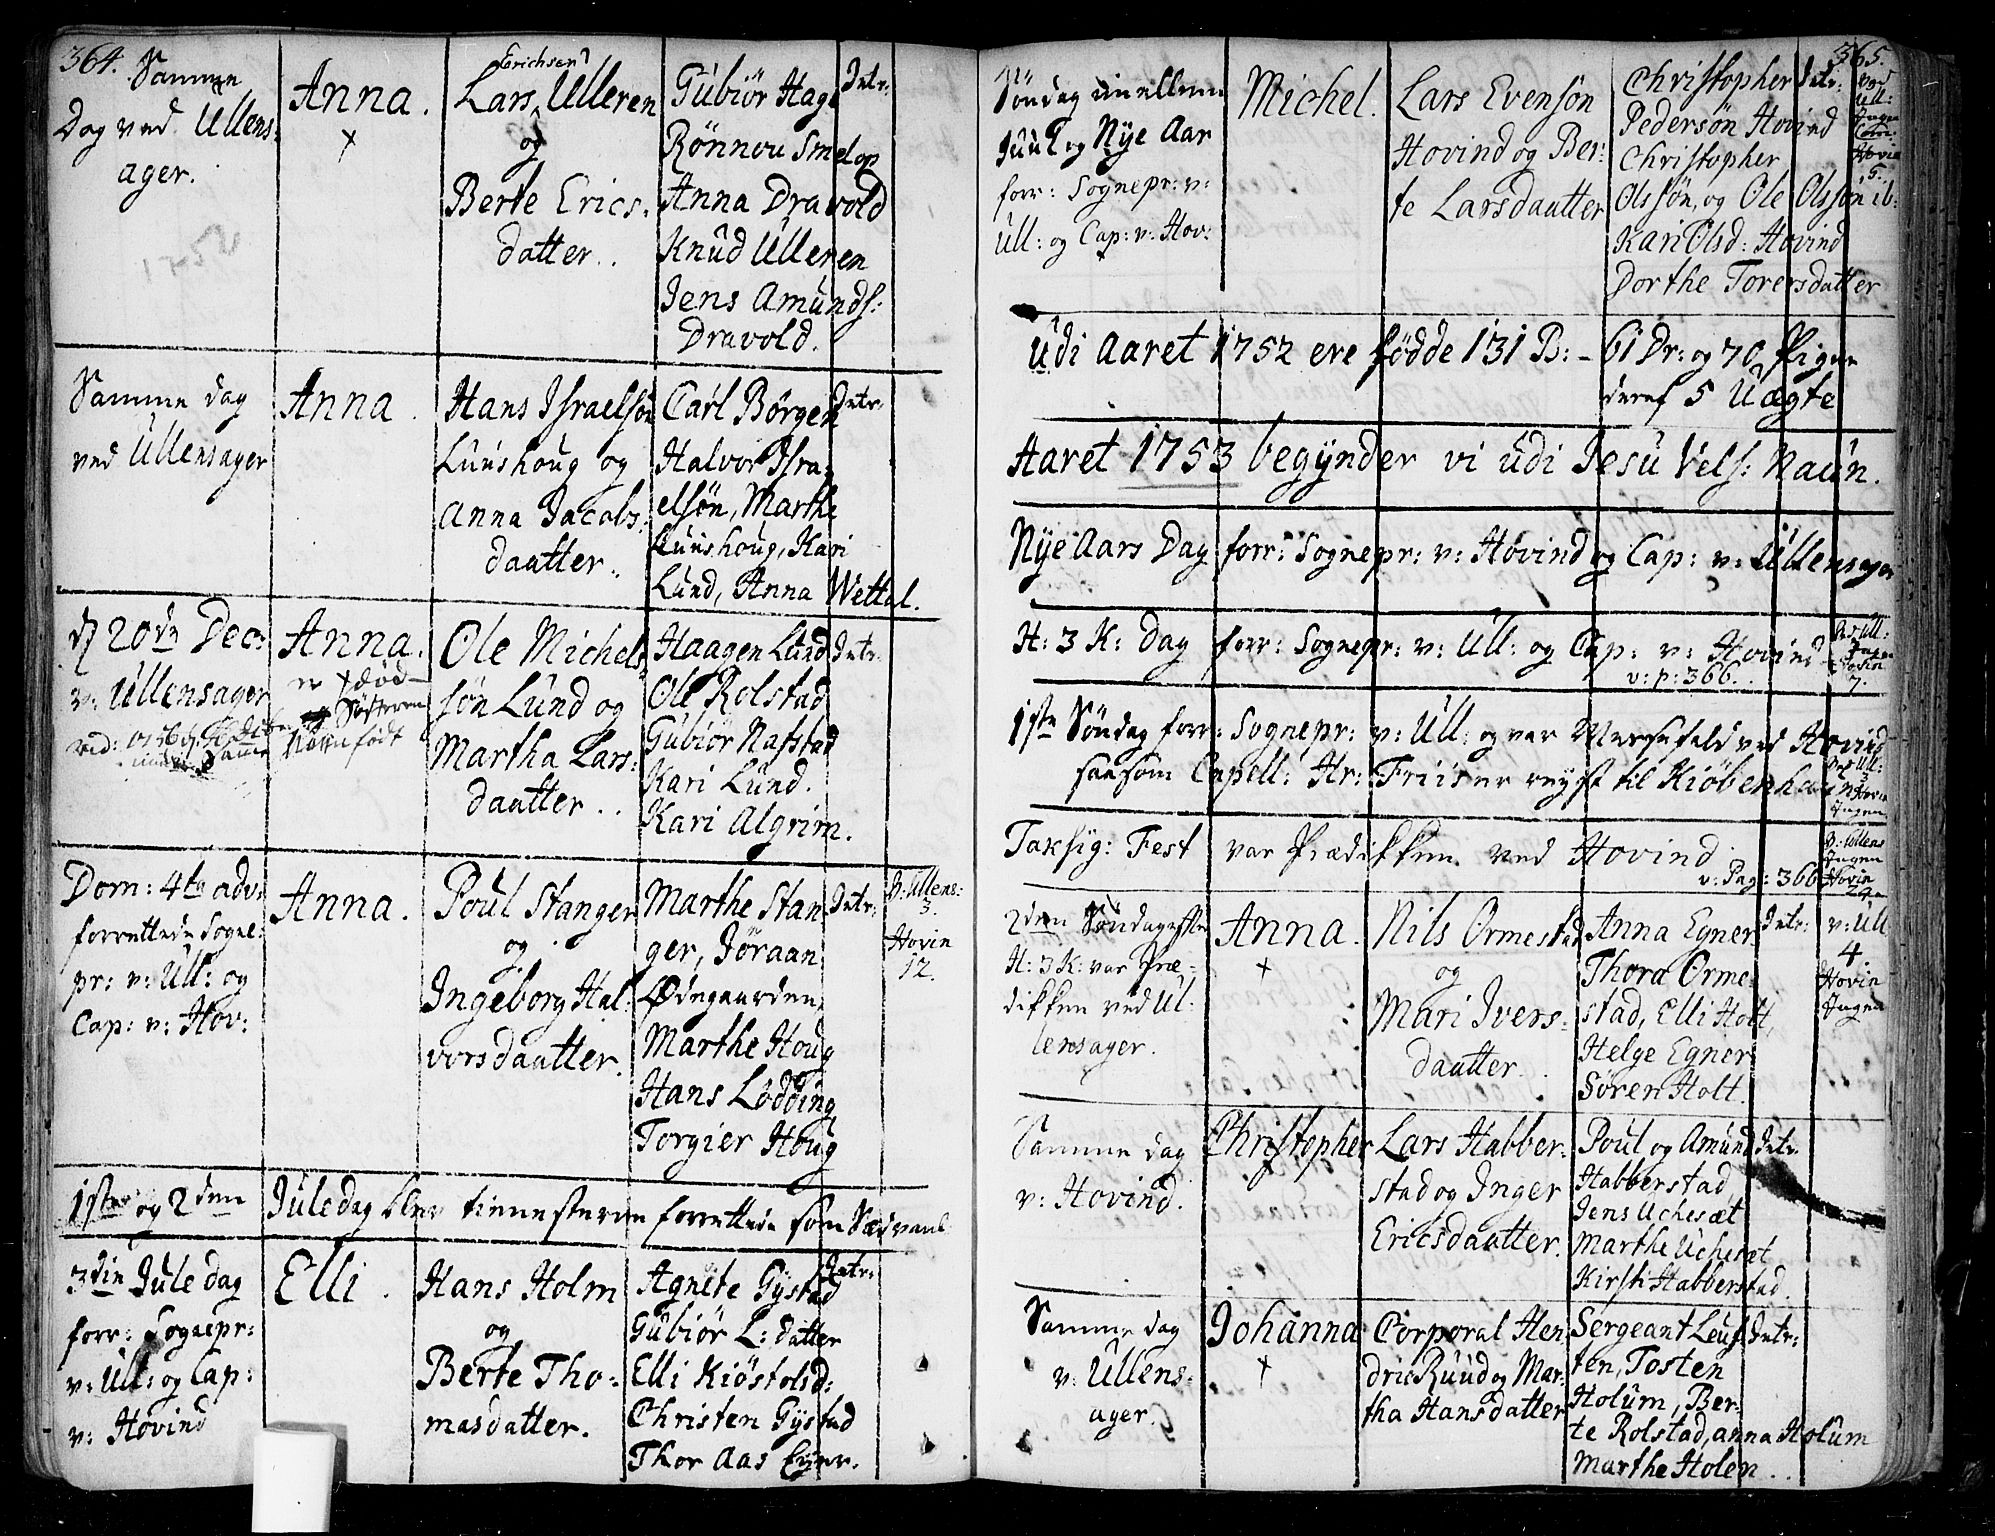 364.
Samme
Dag ved Ullens-
ager.
1752
Anna.
+
Erichsen
Lars Ulleren
og
Berte Erics-
datter.
Gubiör Hage
Rönnou Smelop
Anna Dravold
Knud Ulleren
Jens Amunds:
Dravold.
Intr:
Samme dag
ved Ullensager
Anna.
Hans Israelsön
Luushoug og
Anna Jacobs-
daatter.
Carl Börgen
Halvor Isra-
elsön, Marthe
Luushoug, Kari
Lund, Anna Wettal.
Intr:
d 20de Dec:
v: Ullensager
Anna.
er död
Ole Michels
sön Lund og
Martha Lars-
daatter.
Haagen Lund
Ole Rolstad
Gubiör Nafstad
Kari Lund.
Kari Algrim.
Intr:
Dom: 4ta adv:
forrettede Sogne-
pr: v: Ull: og
Cap: v: Hov:
Anna.
Poul Stanger
og
Ingeborg Hal-
vorsdaatter.
Marthe Stan
ger, Jöraan
Ödegaarden,
Marthe Houg
Hans Lodding
Torgier Houg
Intr:
v: Ullens:
3.
Hovin
12.
1ste og 2den Juledag blev tienesterne forrettede som Sædvanl
3die Jule dag
forr: Sognepr:
v: Ull: og Cap:
v: Hovind
Elli.
Hans Holm
og
Berte Tho-
masdatter.
Agnete Gystad
Gubiör L: datter
Elli Kiöstolsd:
Christen Gystad
Thor Aas Eyer.
Intr:
365.
Söndag imellem
Juul og Nye Aar
forr: Sognepr: v:
Ull: og Cap: v: Hov:
Michel.
Lars Evensön
Hovind og Ber-
te Larsdaatter
Christopher
Pedersön Hovind
Christopher
Olssön, og Ole Olssön ib:
Kari Olsd: Hovind
Dorthe Torersdatter
Intr:
ved
Ull:
Ingen
Com:
Hovin
5.
Udi Aaret 1752 ere födde 131 B: - 61 Dr: og 70 Piger
deraf 5 Uægte
Aaret 1753 begynder vi udi Jesu Vels: Naun.
Nye Aars Dag forr: Sognepr: v: Hovind og Cap: v: Ullensager
H: 3 K: Dag forr: Sognepr: v: Ull: og Cap: v: Hovind
v: p: 366.
Ved Ull:
Ingen
Hovin
7.
1ste Söndag forr: Sognepr: v: Ull: og var Messefald ved Hovind
saasom Capell: Hr: Friis er reyst til Kiöbenhavn
Ved Ull:
3
Hovin
Ingen
Taksig: Fest var Prædikken ved Hovind
v: Pag: 366
v: Ullens
Ingen
Hovin
2den Söndag efter
H: 3 K: var Præ-
dikken ved Ul-
lensager.
Anna.
+
Nils Ormestad
og
Mari Ivers-
daatter.
Anna Egner
Thora Orme-
stad, Elli Holt,
Helge Egner
Sören Holt.
Intr:
v: Ull
4.
Hovin
Ingen
Samme dag
v: Hovind.
Christopher
Lars Habber-
stad og Inger
Ericsdaatter.
Poul og Amund
Habberstad,
Jens Uchesæt
Marthe Uchesæt
Kirsti Habberstad.
Intr:
Samme dag
v: Ullens-
ager.
Johanna
+
Corporal Hen
dric Ruud og Mar-
tha Hansdatter
Sergeant Leuf-
ten, Tosten
Holum, Ber-
te Rolstad, anna Holum
Marthe Holen.
Intr: